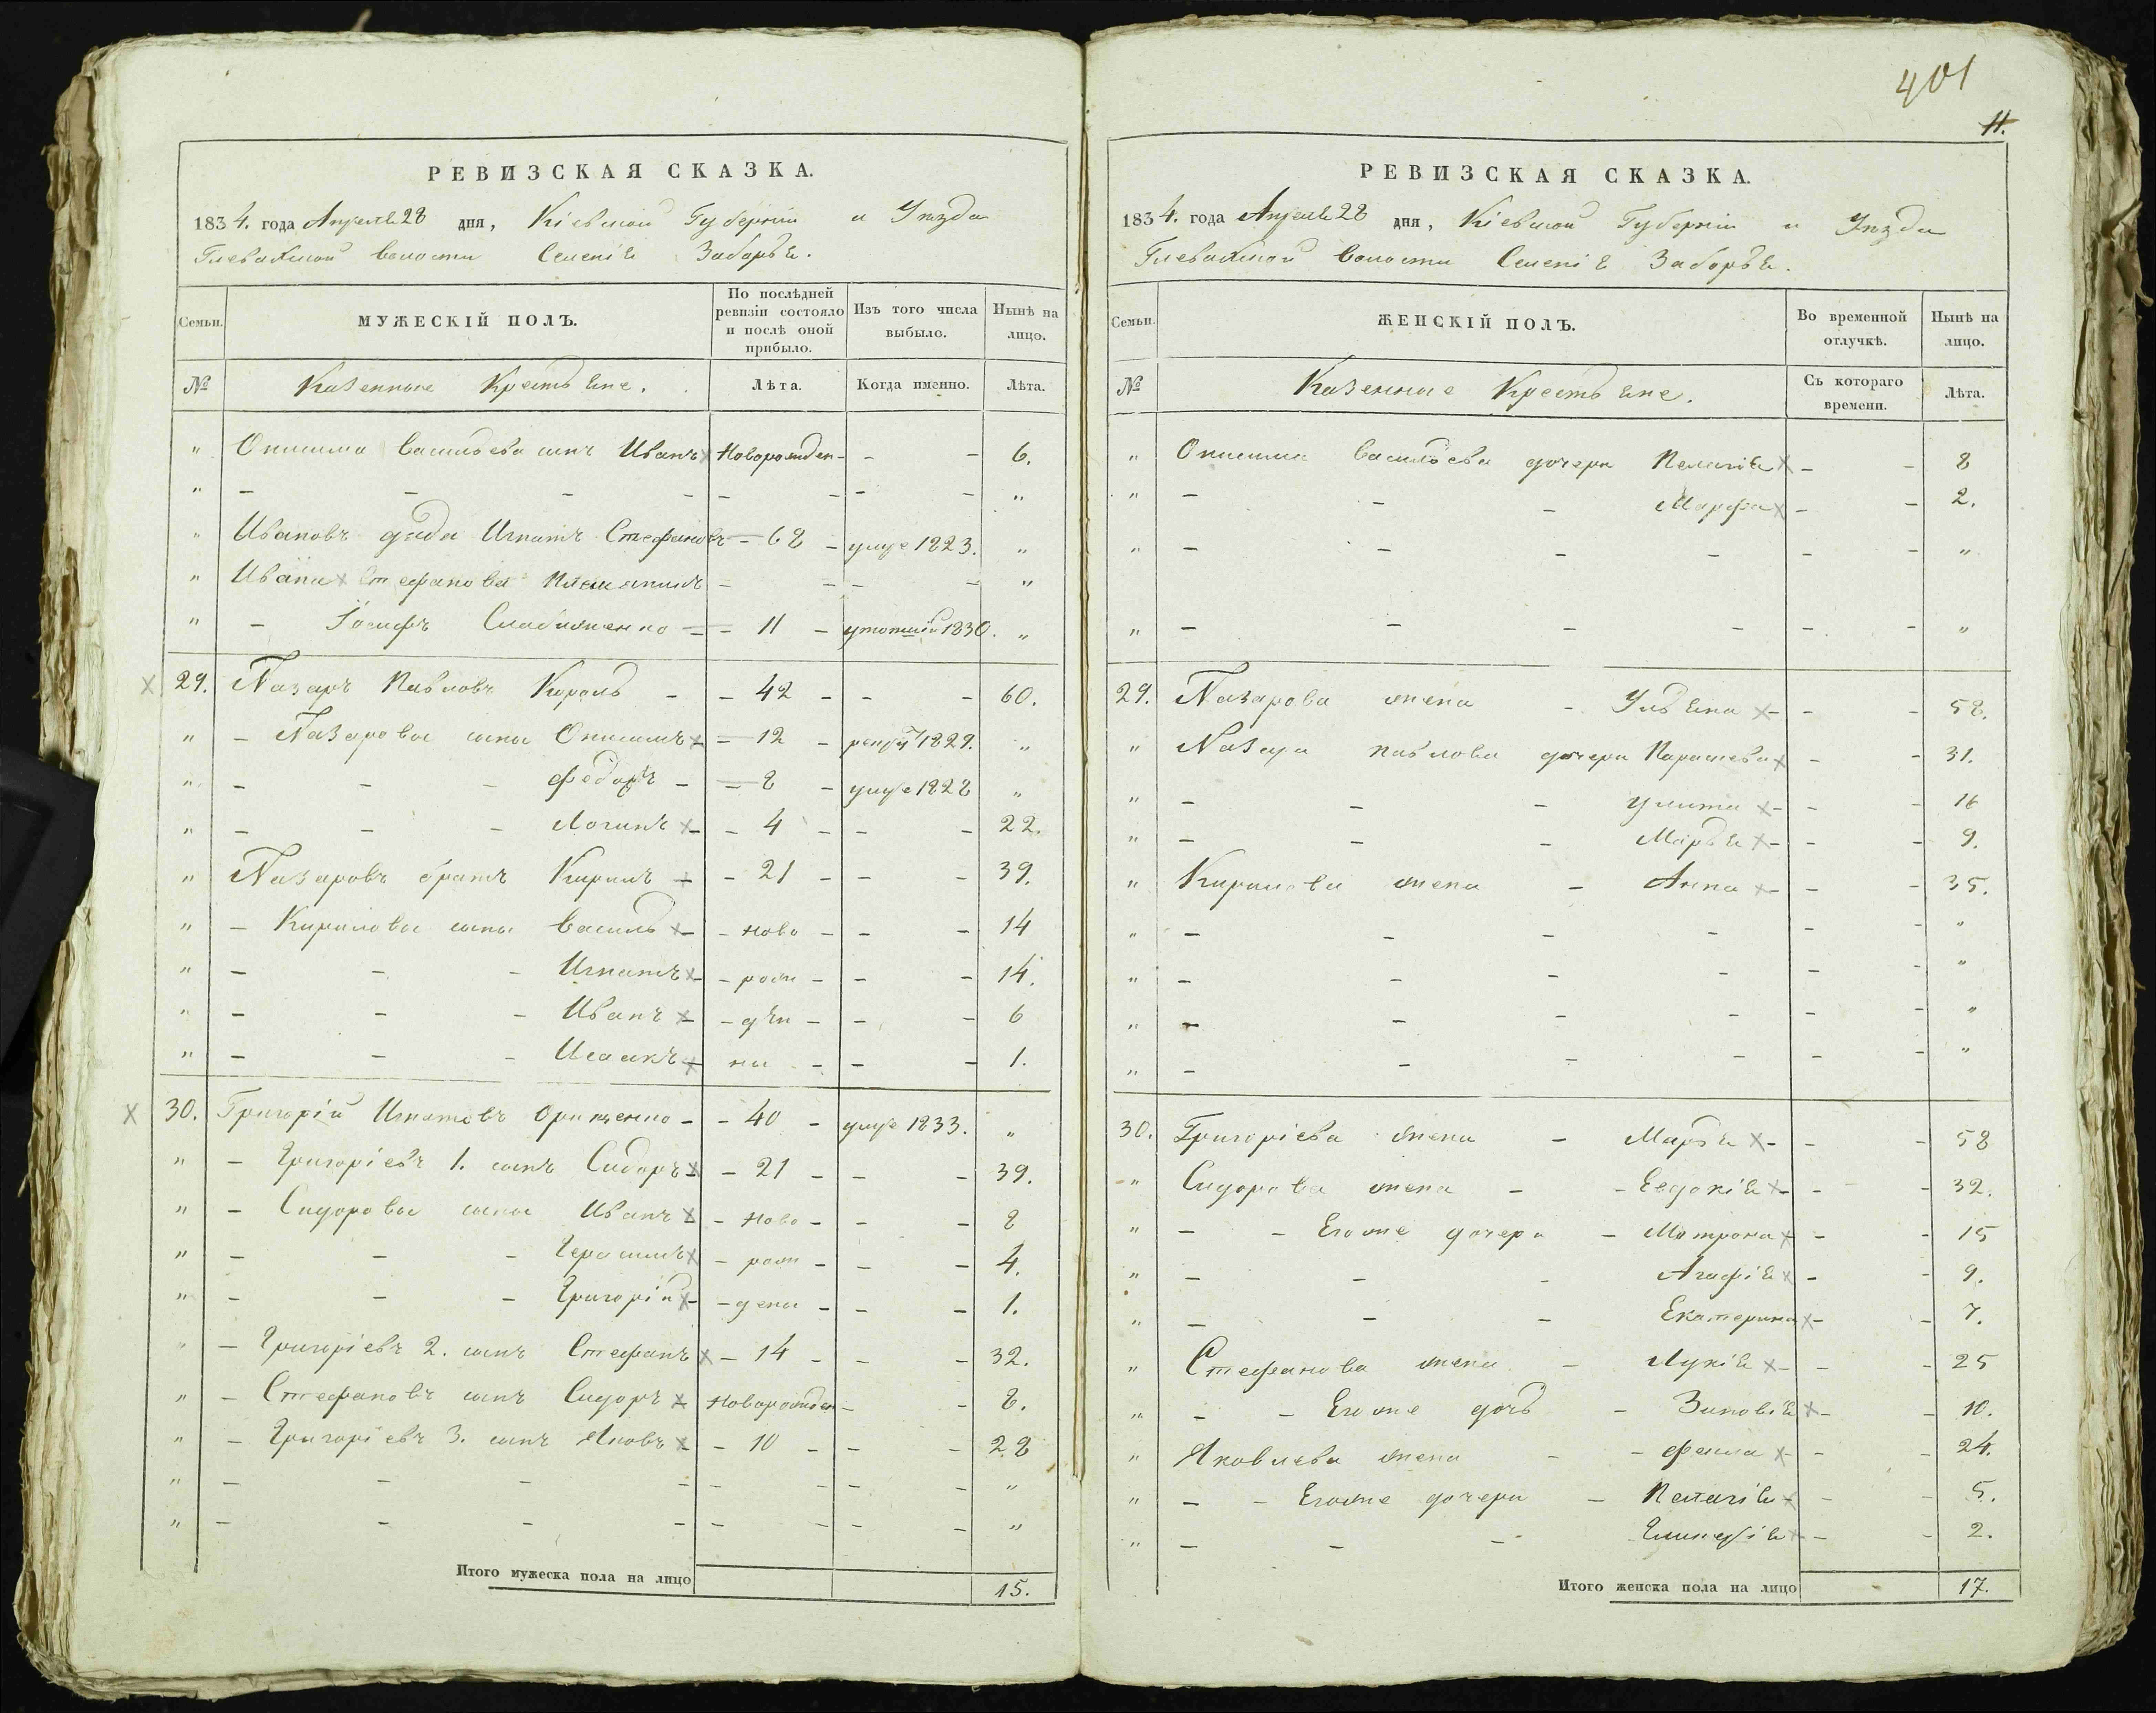 401
11.
РЕВИЗСКАЯ СКАЗКА.
1834. года Апреля 28 дня, Кіевской Губерніи и Уезда
Глевахской волости Селенія Заборья.
Семьи. МУЖЕСКІЙ ПОЛЪ. По послѣдней ревизіи состояло и послѣ оной прибыло. Изъ того числа выбыло. Нынѣ на лицо.
№ Казенные Крестьяне. Лѣта. Когда именно. Лѣта.
" Онисима Васильева сынъ Иванъ Новорожден - - 6.
" - - - - - - - - "
" Ивановъ дядя Игнатъ Стефановъ - 68 - умре 1823. "
" Ивана Стефанова племянникъ - - - - "
" - Іосифъ - 11 - 1830. "
29. Назаръ Павловъ Король - - 42 - - - 60.
" - Назаровы сыны Онисимъ - 12 - 1829. "
" - - - Федоръ - - 8 - умре 1828 "
" - - - Логинъ - - 4 - - - 22.
" Назаровъ братъ Кирилъ - - 21 - - - 39.
" - Кириловы сыны Василь - - ново - - - 14
" - - - Игнатъ - - рож - - - 14.
" - - - Иванъ - - дѣн - - - 6
" - - - Исаакъ - ны - - - 1.
30. Григорій Игнатовъ Орищенко - - 40 - умре 1833. "
" - Григоріевъ 1. сынъ Сидоръ - - 21 - - - 39.
" - Сидоровы сыны Иванъ - - ново - - - 8
" - - - Герасимъ - рож - - - 4.
" - - - Григорій - - дены - - - 1.
" - Григоріевъ 2. сынъ Стефанъ - 14 - - - 32.
" - Стефановъ сынъ Сидоръ Новорожден - - 8.
" - Григоріевъ 3. сынъ Яковъ - - 10 - - - 28
" - - - - - - - - "
" - - - - - - - - "
Итого мужеска пола на лицо 15.
РЕВИЗСКАЯ СКАЗКА.
1834. года Апреля 28 дня, Кіевской Губерніи и Уезда
Глевахской волости Селенія Заборья.
Семьи. ЖЕНСКІЙ ПОЛЪ. Во временной отлучкѣ. Нынѣ на лицо.
№ Казенные Крестьяне. Съ котораго времени. Лѣта.
" Онисима Васильева дочери Пелагія - - 8
" - - - Марфа - - 2.
" - - - - - - "
" - - - - - - "
29. Назарова жена - Ульяна - - - 58.
" Назара Павлова дочери Парасковья - - 31.
" - - - Улита - - - 16
" - - - Марья - - - 9.
" Кирилова жена - Анна - - - 35.
" - - - - - - "
" - - - - - - "
" - - - - - - "
" - - - - - - "
30. Григоріева жена - Марья - - - 58
" Сидорова жена - - Евдокія - - - 32.
" - - Егоже дочери - Матрона - - 15
" - - - Агафія - - 9.
" - - - Екатерина - - 7.
" Стефанова жена - Лукія - - - 25
" - - Егоже дочь - Зиновія - - 10.
" Яковлева жена - - Фекла - - - 24.
" - - Егоже дочери - Пелагія - - 5.
" - - - - - 2.
Итого женска пола на лицо 17.